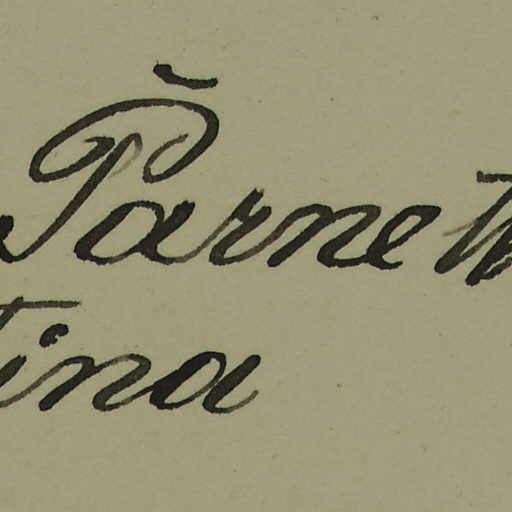 Parnet
tina